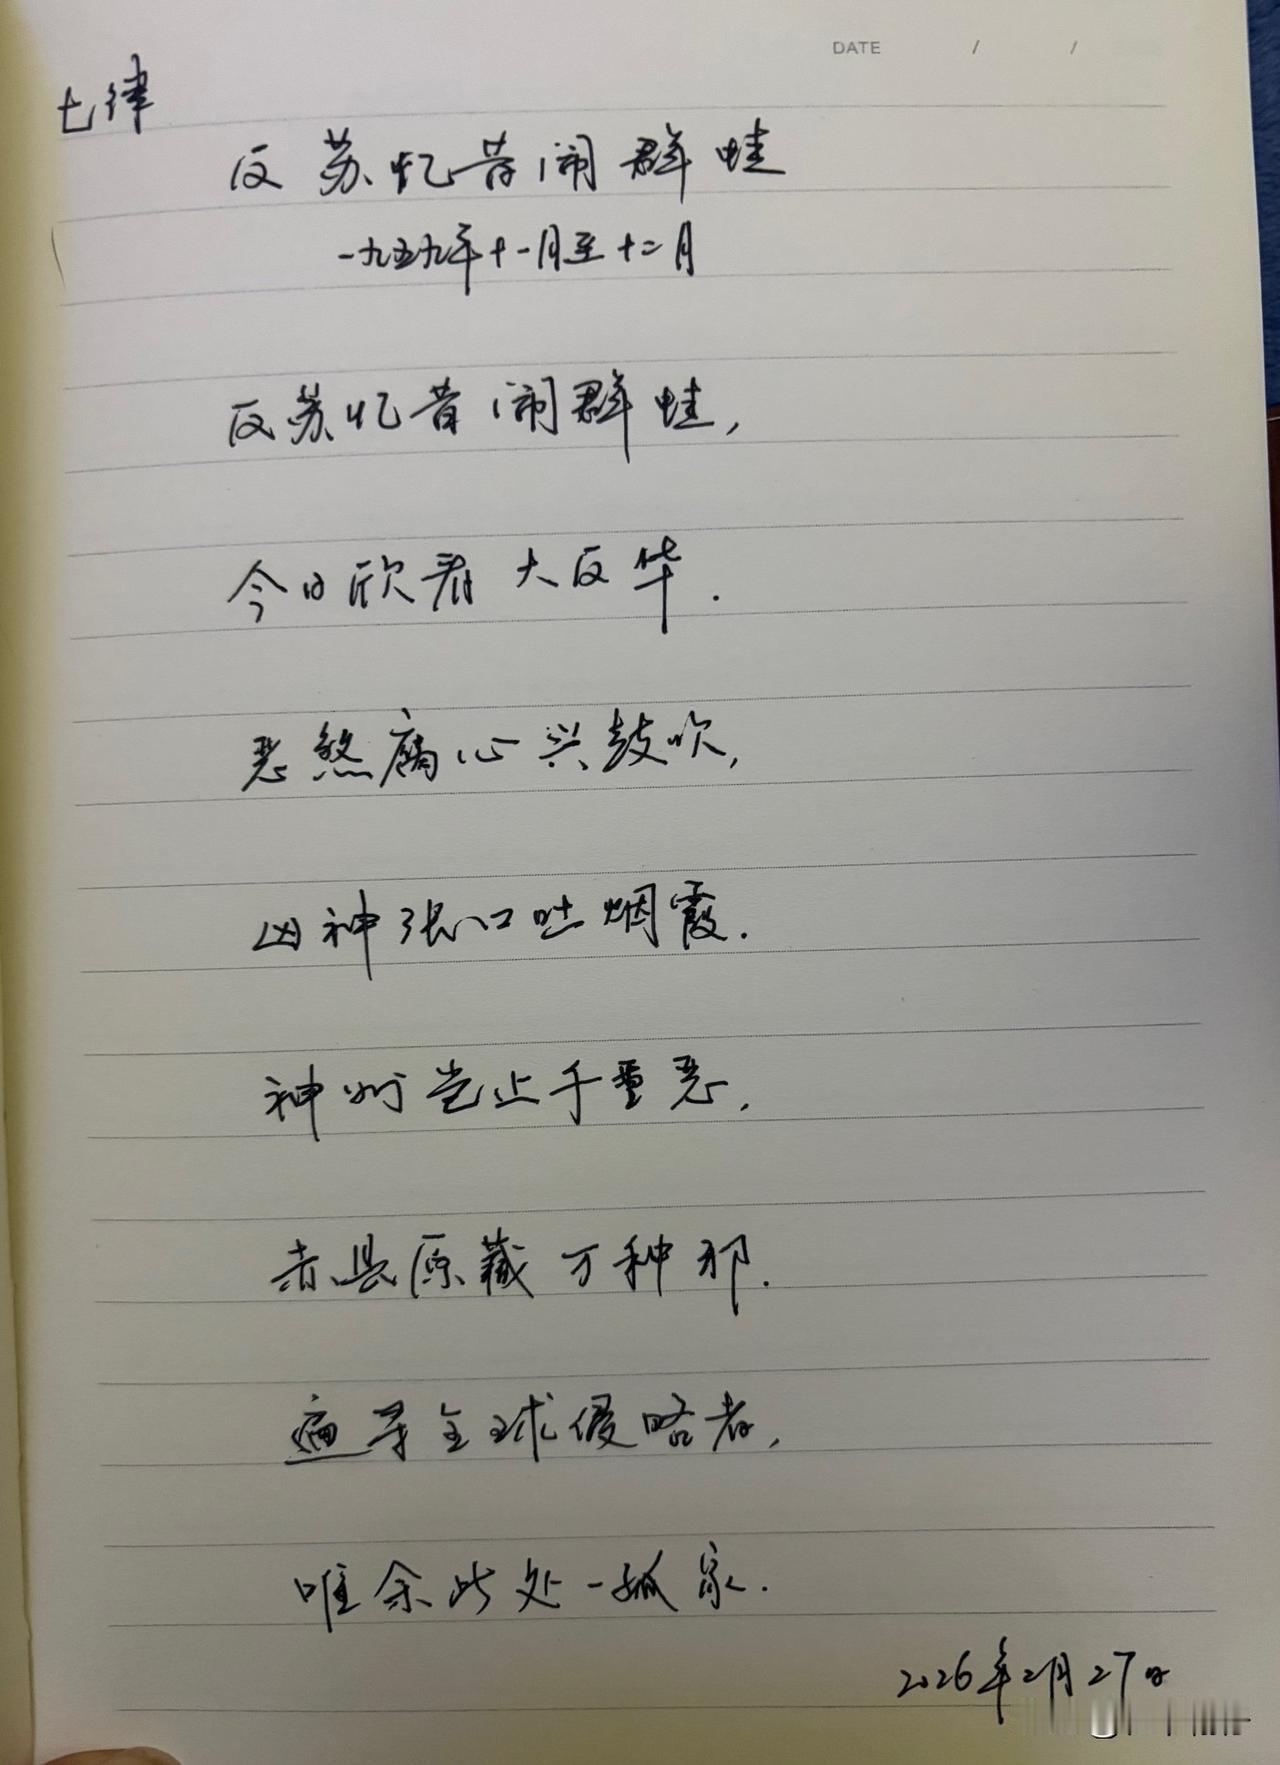 DATE / /
七律
反苏忆昔闹群蛙
一九五九年十一月至十二月
反苏忆昔闹群蛙，
今日欣看大反华.
恶煞腐心兴鼓吹，
凶神张口吐烟霞.
神州岂止千重恶，
赤县原藏万种邪.
遍寻全球侵略者，
唯余此处一孤家.
2026年2月27日